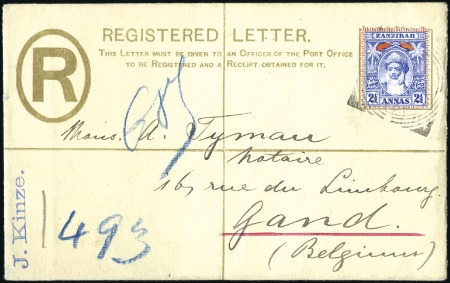 REGISTERED LETTER.
THIS LETTER MUST BE GIVEN TO AN OFFICER OF THE POST OFFICE
TO BE REGISTERED AND A RECEIPT OBTAINED FOR IT.
R
ZANZIBAR
2½ 2½
ANNAS
Mons. A. Tyman
Notaire
16, rue du Limbourg
Gand.
(Belgium)
J. Kinze.
493